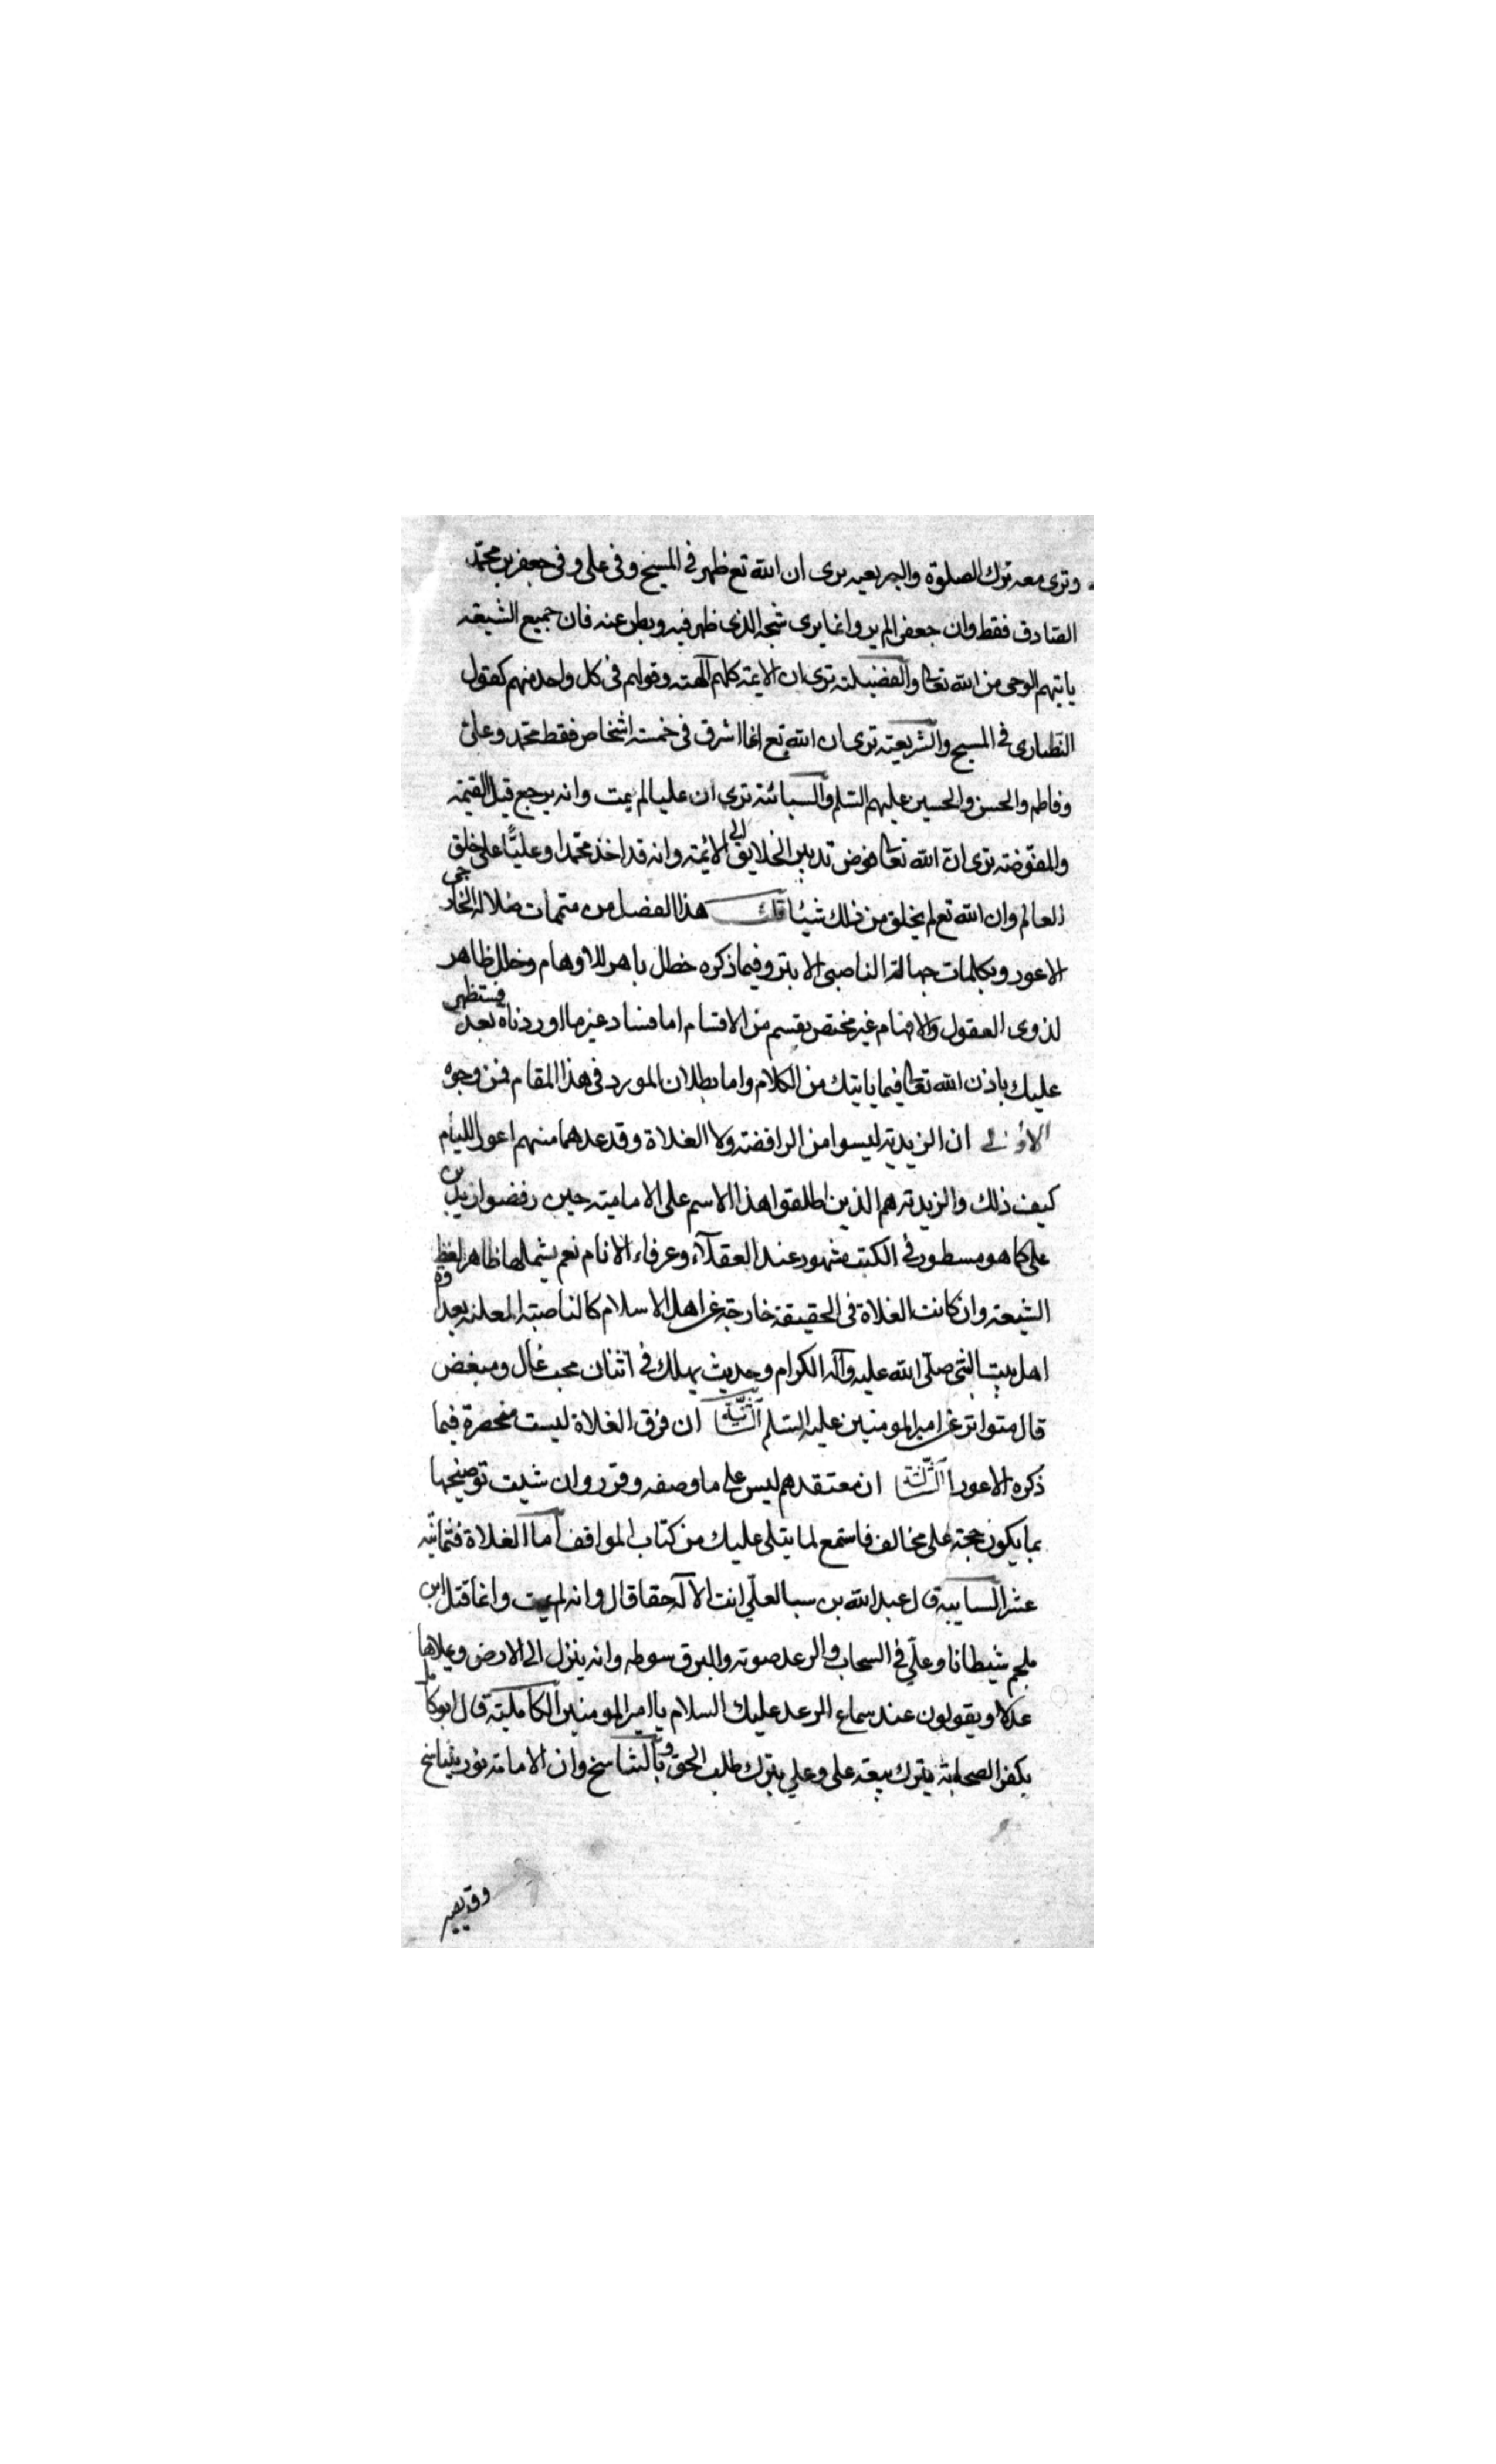 وترى معه ترك الصلوة والبريعيه يرى ان الله تع ظهر في المسيح وفى على وفى جعفر بن محمد
الصادق فقط وان جعفر لم ير وانما يرى شبحه الذى ظهر فيه وبطن عنه فان جميع الشيعة
ياتيهم الوحى من الله تعالى والفضيلية ترى ان الائمة كلهم آلهة وقولهم فى كل واحد منهم كقول
النصارى في المسيح والشريعية ترى ان الله تع انما اشرق فى خمسة اشخاص فقط محمد وعلى
وفاطمه والحسن والحسين عليهم السلم والسبائية ترى ان عليا لم يمت وانه يرجع قبل القيمة
والمفوضة ترى ان الله تعالى فوض تدبير الخلايق الى الائمة وانه قد اخذ محمدا وعليًا على خلق
العالم وان الله تع لم يخلق من ذلك شيئا قلت هذا الفصل من متممات ضلالة الخارجى
الاعور ومكملات جهالة الناصبى الابتر وفيما ذكره خطل باهر للاوهام وخلل ظاهر
لذوى العقول والافهام غير مختص بقسم من الاقسام اما فساد غير ما اوردناه بعد فستظهر
عليك باذن الله تعالى فيما ياتيك من الكلام واما بطلان المورد فى هذا المقام فمن وجوه
الاول ان الزيدية ليسوا من الرافضة ولا الغلاة وقد عدهما منهم اعور الليام
كيف ذلك والزيدية هم الذين اطلقوا هذا الاسم على الامامية حين رفضوا زيد بن
على كما هو مسطور في الكتب مشهور عند العقلآء وعرفاء الانام نعم يشملها ظاهر لفظ
الشيعة وان كانت الغلاة فى الحقيقة خارجة عن اهل الاسلام كالناصبة المعلنة بعداوة
اهل بيت النبى صلى الله عليه وآله الكرام وحديث يهلك فى اثنان محب غال ومبغض
قال متواتر عن امير المومنين عليه السلم الثانية ان فرق الغلاة ليست منحصرة فيما
ذكره الاعور الثالثة ان معتقدهم ليس على ما وصفه وقرر وان شيت توضيحها
بما يكون حجة على مخالف فاستمع لما يتلى عليك من كتاب المواقف اما الغلاة فثمانية
عشر السابيه قال عبد الله بن سبا لعلى انت الآله حقا قال وانه لم يمت وانما قتل ابن
ملجم شيطانا وعلى في السحاب والرعد صوته والبرق سوطه وانه ينزل الى الارض ويملاها
عدلا ويقولون عند سماع الرعد عليك السلام يا امير المومنين الكاملية قال ابو كامل
بكفر الصحابة بترك بيعة على وعلى بترك طلب الحق وبالتناسخ وان الامامة نور يتناسخ
وقد يصير